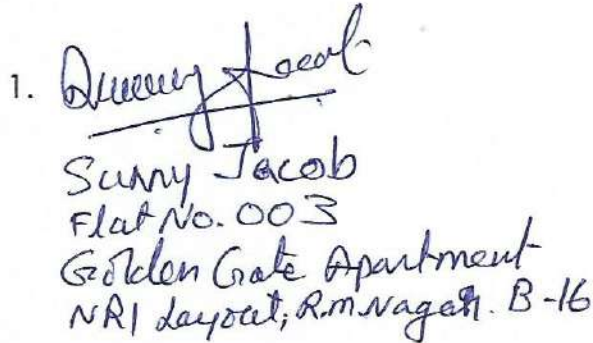 1. Sunny Jacob
Sunny Jacob
Flat No. 003
Golden Gate Apartment
NRI Layout, R.m.Nagar. B-16